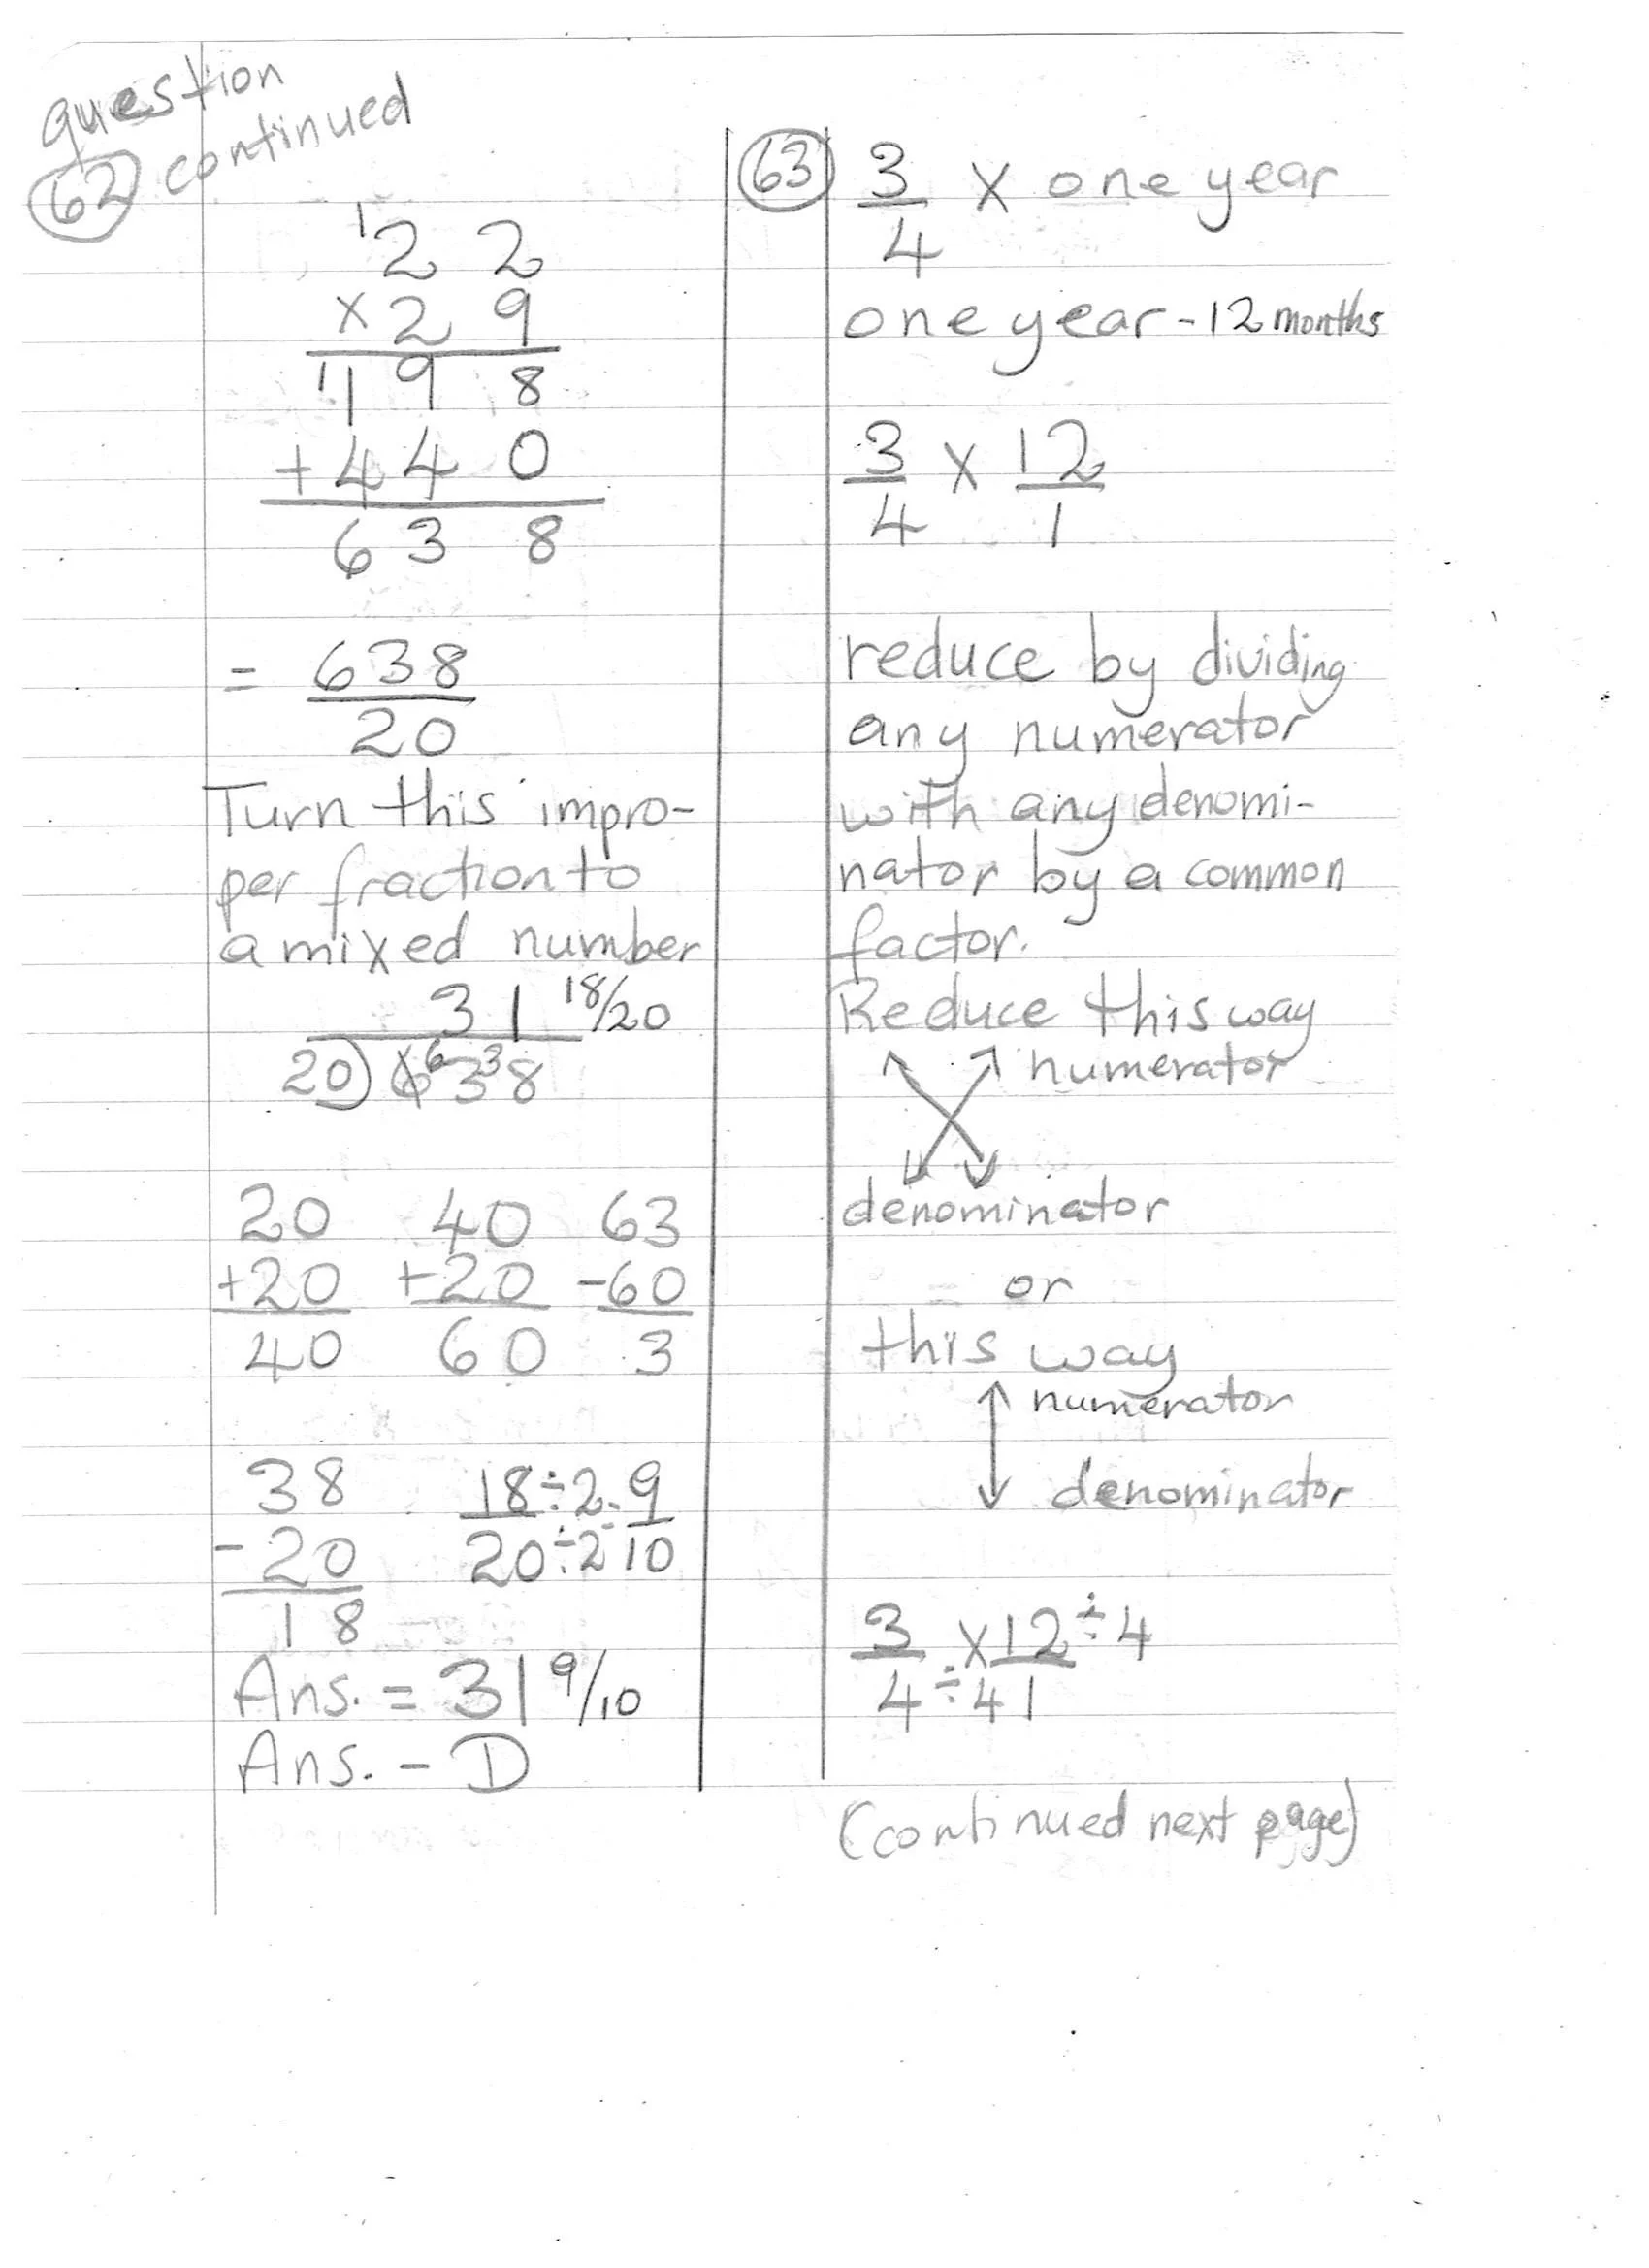 question
62 continued
1
22
×29
11 98
+440
638
= 638
20
Turn this impro-
per fraction to
a mixed number
31 18/20
20)6 6 3 3 8
20 40 63
+20 +20 -60
40 60 3
38 18÷2 = 9
-20 20÷2 10
18
Ans. = 31 9/10
Ans. - D
63 3 × one year
4
one year - 12 months
3 × 12
4 1
reduce by dividing
any numerator
with any denomi-
nator by a common
factor.
Reduce this way
numerator
denominator
or
this way
numerator
denominator
3 × 12 ÷4
4 ÷4 1
(continued next page)